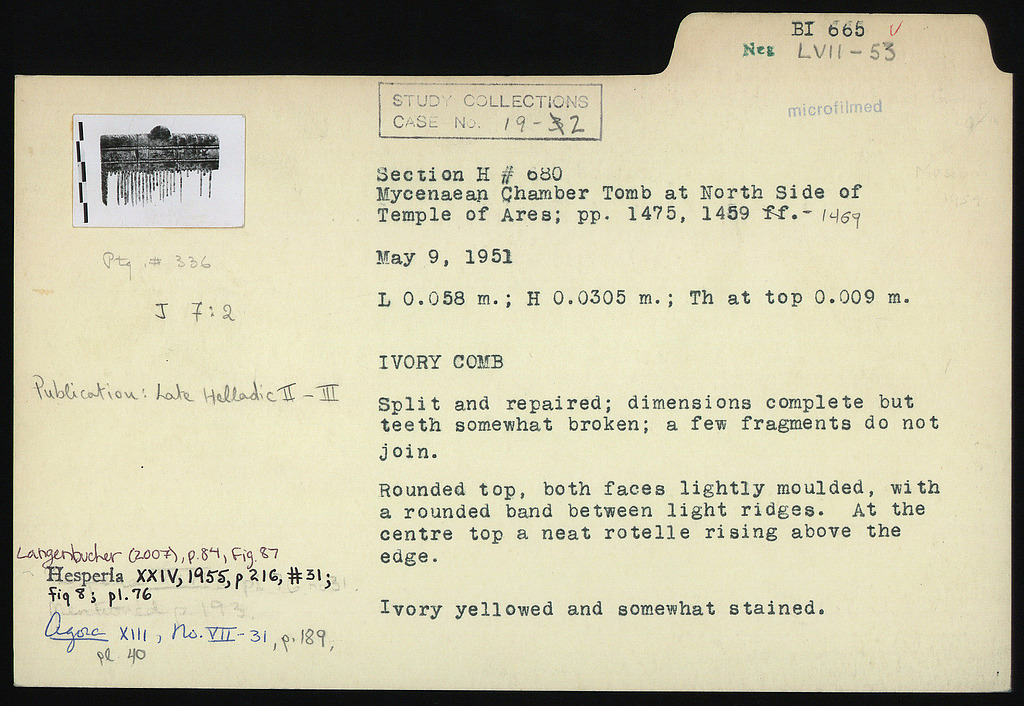 BI 665
Neg LVII-53
microfilmed
STUDY COLLECTIONS
CASE No. 19-32
Section H # 680
Mycenaean Chamber Tomb at North Side of
Temple of Ares; pp. 1475, 1459 ff.- 1469
May 9, 1951
L 0.058 m.; H 0.0305 m.; Th at top 0.009 m.
IVORY COMB
Split and repaired; dimensions complete but
teeth somewhat broken; a few fragments do not
join.
Rounded top, both faces lightly moulded, with
a rounded band between light ridges. At the
centre top a neat rotelle rising above the
edge.
Ivory yellowed and somewhat stained.
Ptg. # 336
J 7:2
Publication: Late Helladic II - III
Langenbucher (2007), p.84, Fig. 87
Hesperia XXIV, 1955, p 216, #31;
fig 8; pl. 76
Agora XIII, No. VII-31, p. 189,
pl. 40